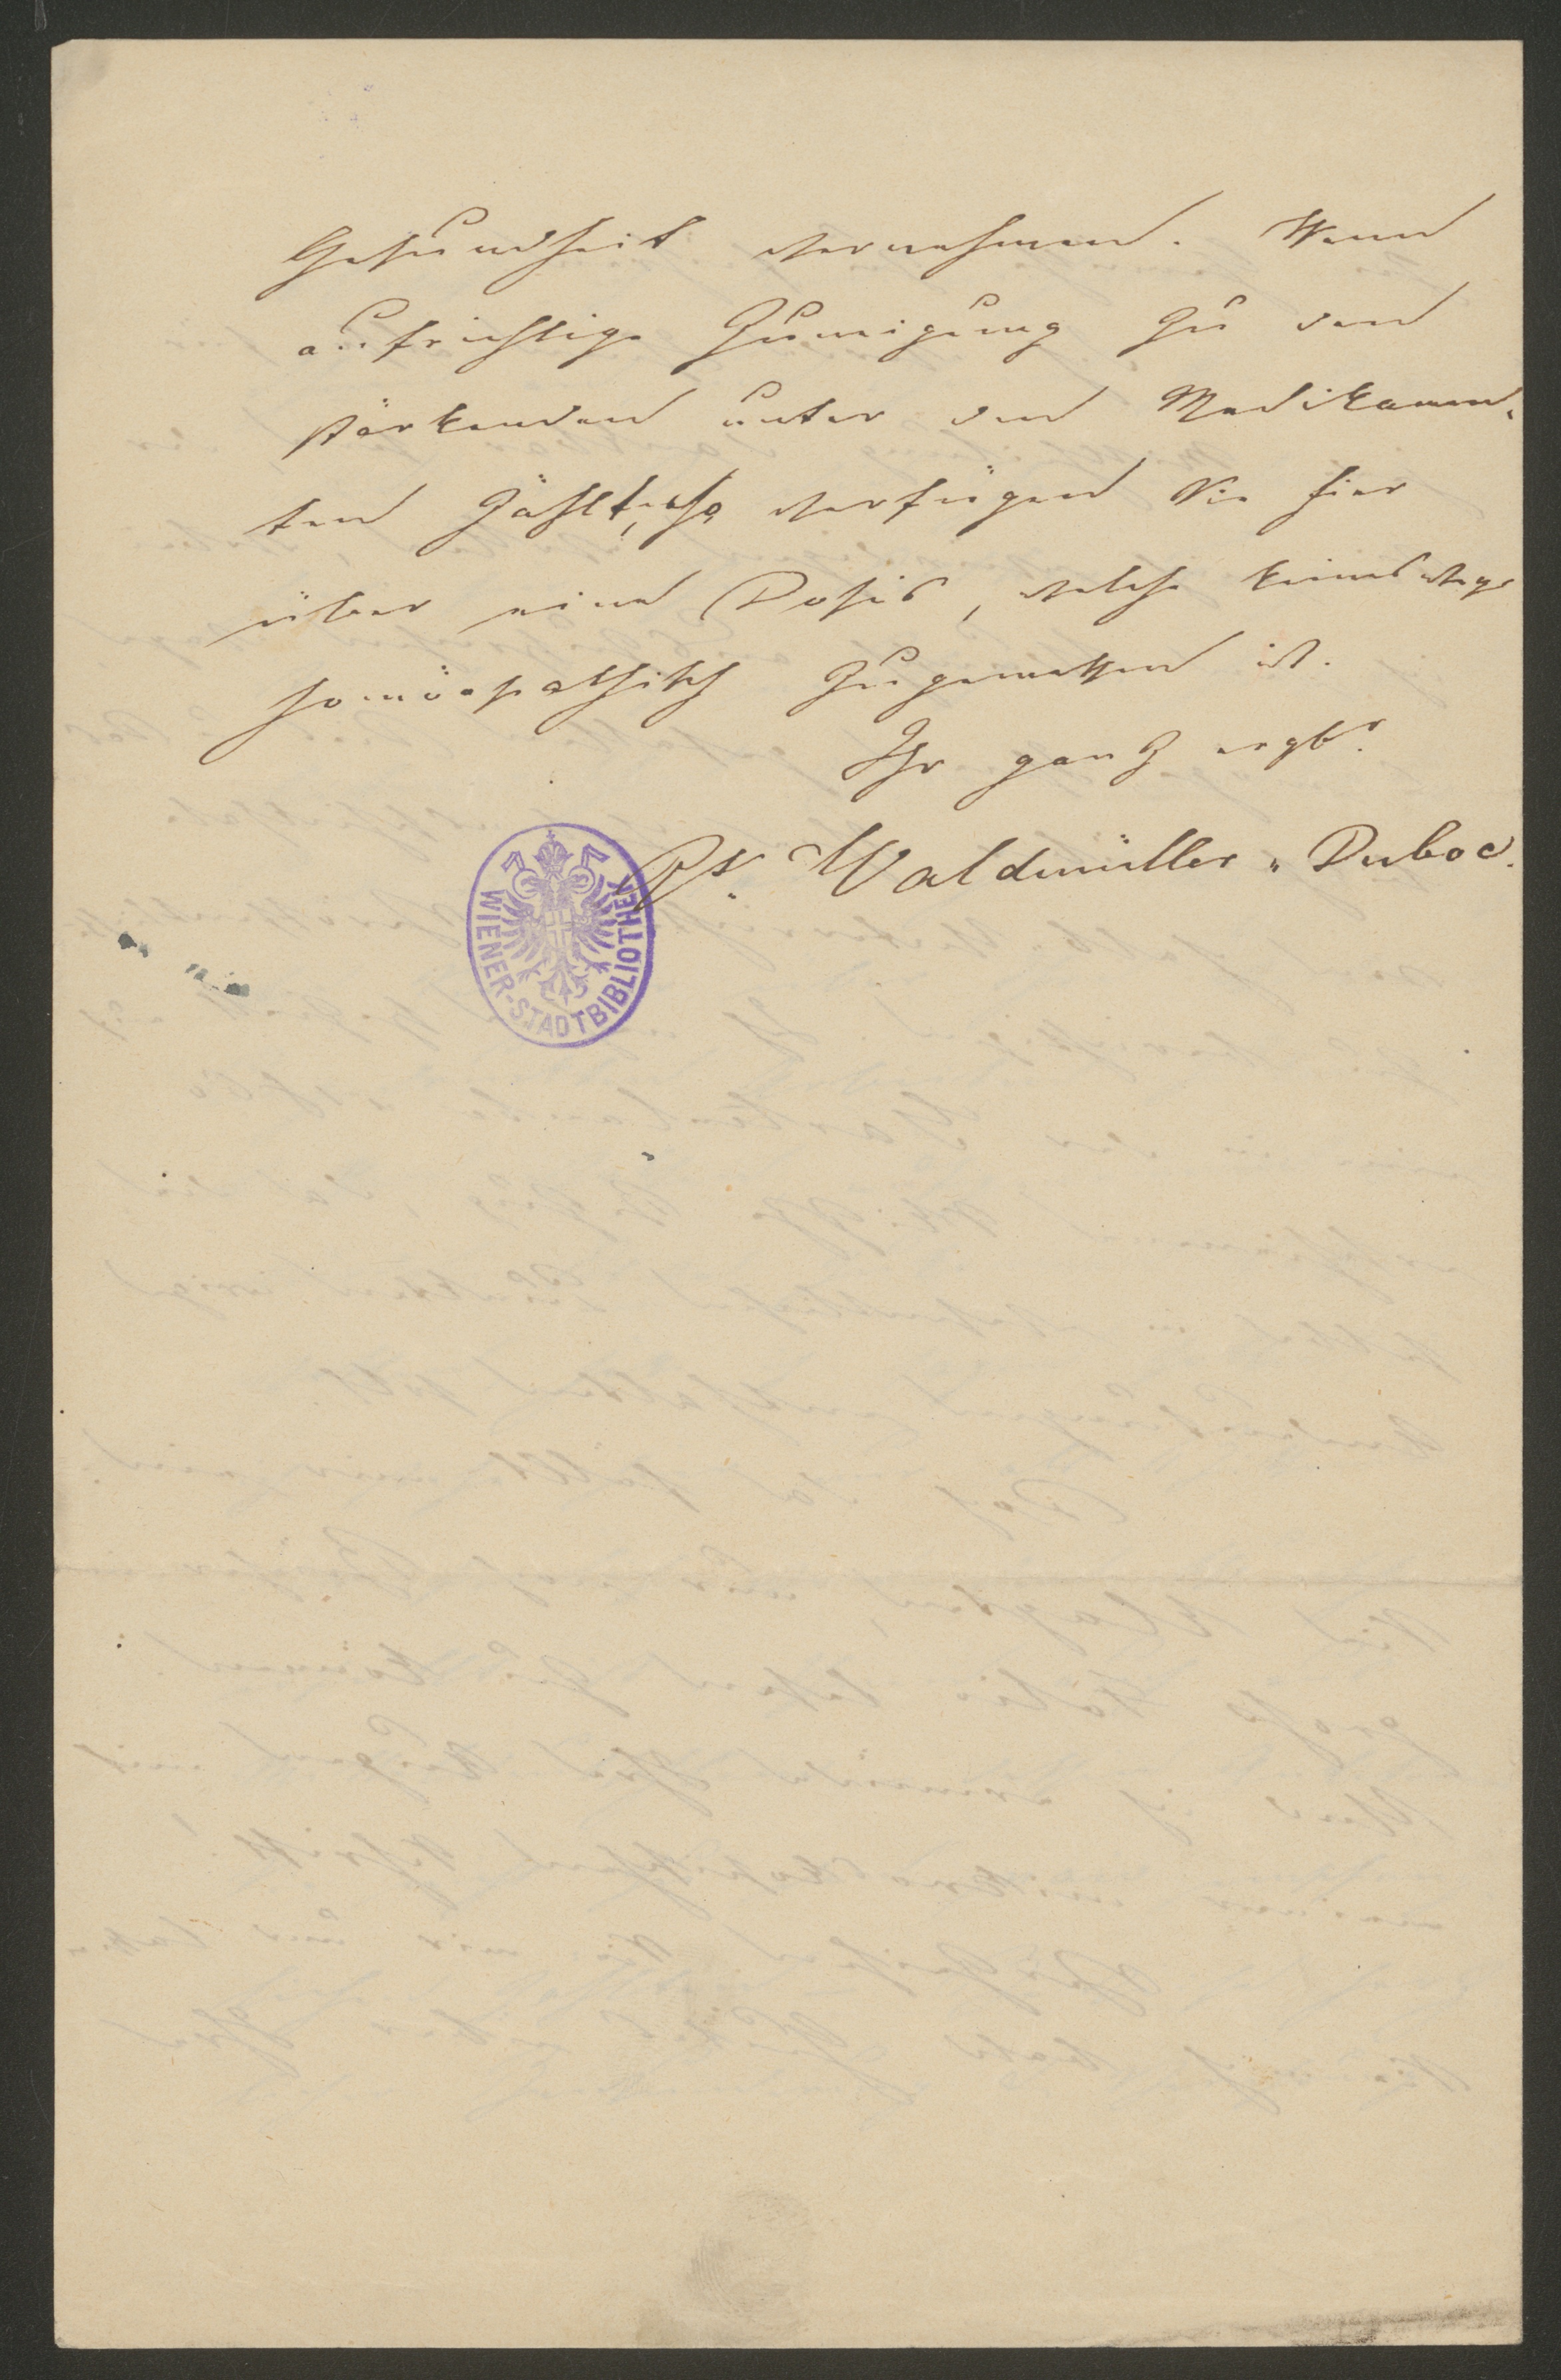 Gesundheit vernehmen. Wenn
aufrichtige Zuneigung zu den
stärkenden unter den Medikamen-
ten zählt, so verfügen Sie hier
über eine Dosis, welche keineswegs
homöopathisch zugemessen ist.
Ihr ganz ergbr.
Waldmüller-Duboc.
WIENER-STADTBIBLIOTHEK